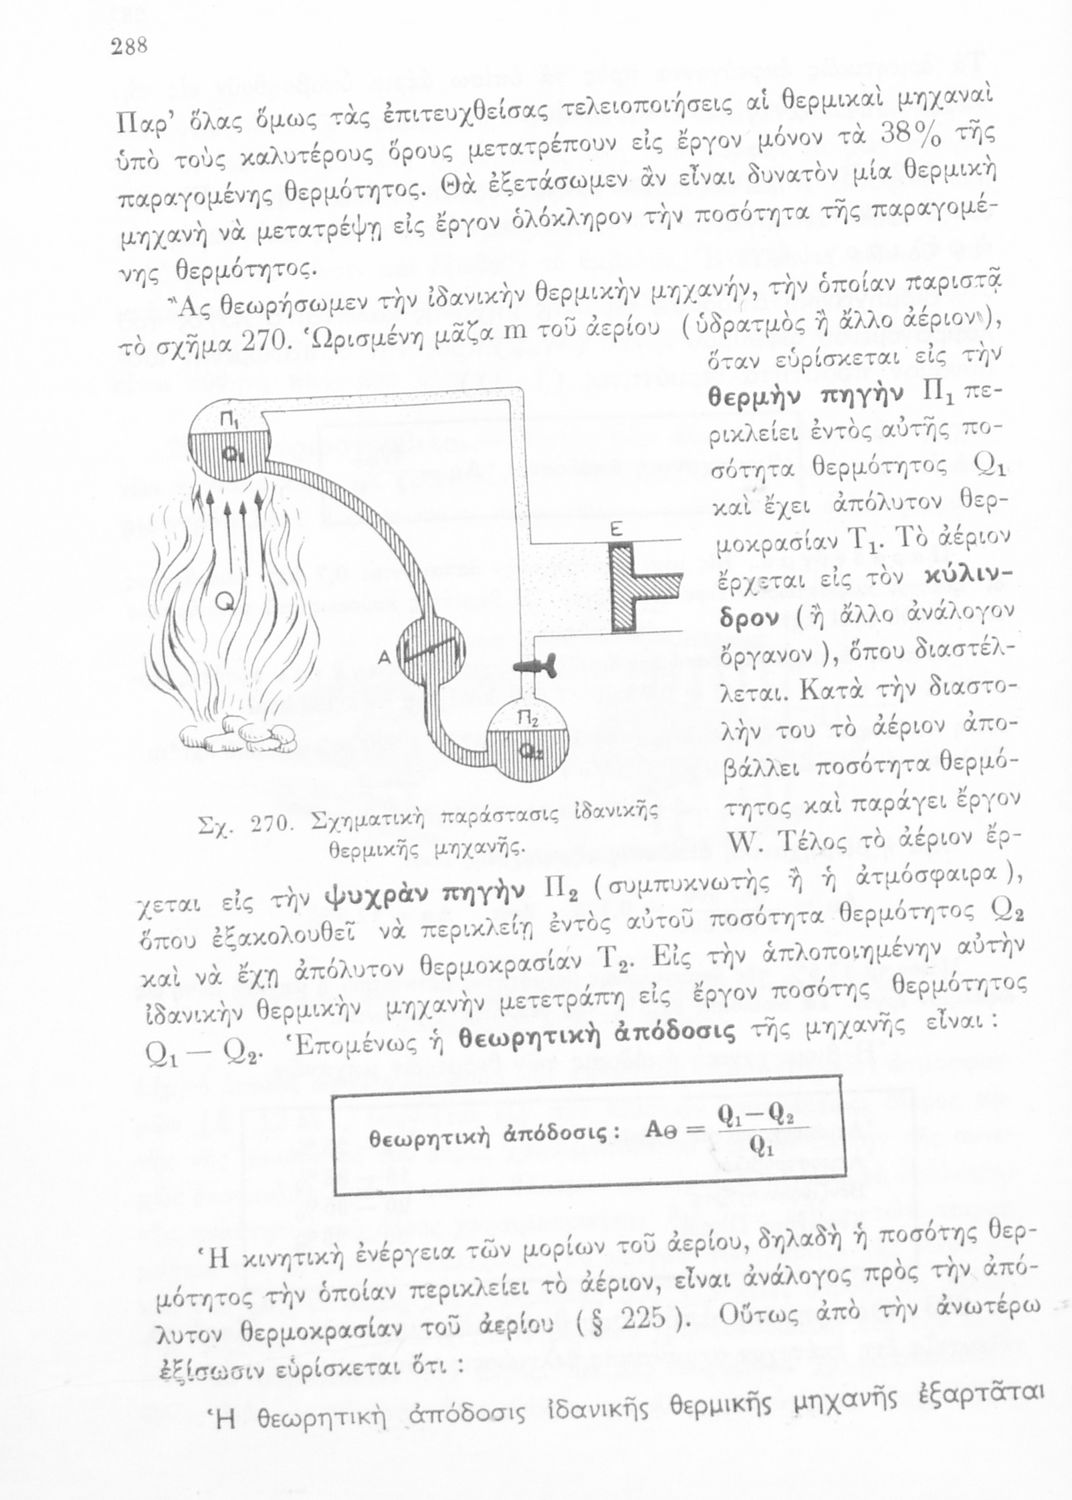 288
Παρ’ ὅλας ὅμως τὰς ἐπιτευχθείσας τελειοποιήσεις αἱ θερμικαὶ μηχαναὶ
ὑπὸ τοὺς καλυτέρους ὅρους μετατρέπουν εἰς ἔργον μόνον τὰ 38% τῆς
παραγομένης θερμότητος. Θὰ ἐξετάσωμεν ἂν εἶναι δυνατὸν μία θερμικὴ
μηχανὴ νὰ μετατρέψῃ εἰς ἔργον ὁλόκληρον τὴν ποσότητα τῆς παραγομέ-
νης θερμότητος.
Ἂς θεωρήσωμεν τὴν ἰδανικὴν θερμικὴν μηχανήν, τὴν ὁποίαν παριστᾷ
τὸ σχῆμα 270. Ὡρισμένη μᾶζα m τοῦ ἀερίου (ὑδρατμὸς ἢ ἄλλο ἀέριον),
ὅταν εὑρίσκεται εἰς τὴν
θερμὴν πηγὴν Π₁ πε-
ρικλείει ἐντὸς αὐτῆς πο-
σότητα θερμότητος Q₁
καὶ ἔχει ἀπόλυτον θερ-
μοκρασίαν T₁. Τὸ ἀέριον
ἔρχεται εἰς τὸν κύλιν-
δρον (ἢ ἄλλο ἀνάλογον
ὄργανον), ὅπου διαστέλ-
λεται. Κατὰ τὴν διαστο-
λὴν του τὸ ἀέριον ἀπο-
βάλλει ποσότητα θερμό-
τητος καὶ παράγει ἔργον
W. Τέλος τὸ ἀέριον ἔρ-
Π₁
Q₁
E
Q
A
Π₂
Q₂
Σχ. 270. Σχηματικὴ παράστασις ἰδανικῆς
θερμικῆς μηχανῆς.
χεται εἰς τὴν ψυχρὰν πηγὴν Π₂ (συμπυκνωτὴς ἢ ἡ ἀτμόσφαιρα),
ὅπου ἐξακολουθεῖ νὰ περικλείῃ ἐντὸς αὐτοῦ ποσότητα θερμότητος Q₂
καὶ νὰ ἔχῃ ἀπόλυτον θερμοκρασίαν T₂. Εἰς τὴν ἁπλοποιημένην αὐτὴν
ἰδανικὴν θερμικὴν μηχανὴν μετετράπη εἰς ἔργον ποσότης θερμότητος
Q₁ — Q₂. Ἑπομένως ἡ θεωρητικὴ ἀπόδοσις τῆς μηχανῆς εἶναι :
θεωρητικὴ ἀπόδοσις : A_Θ = (Q₁—Q₂)/Q₁
Ἡ κινητικὴ ἐνέργεια τῶν μορίων τοῦ ἀερίου, δηλαδὴ ἡ ποσότης θερ-
μότητος τὴν ὁποίαν περικλείει τὸ ἀέριον, εἶναι ἀνάλογος πρὸς τὴν ἀπό-
λυτον θερμοκρασίαν τοῦ ἀερίου (§ 225). Οὕτως ἀπὸ τὴν ἀνωτέρω
ἐξίσωσιν εὑρίσκεται ὅτι :
Ἡ θεωρητικὴ ἀπόδοσις ἰδανικῆς θερμικῆς μηχανῆς ἐξαρτᾶται